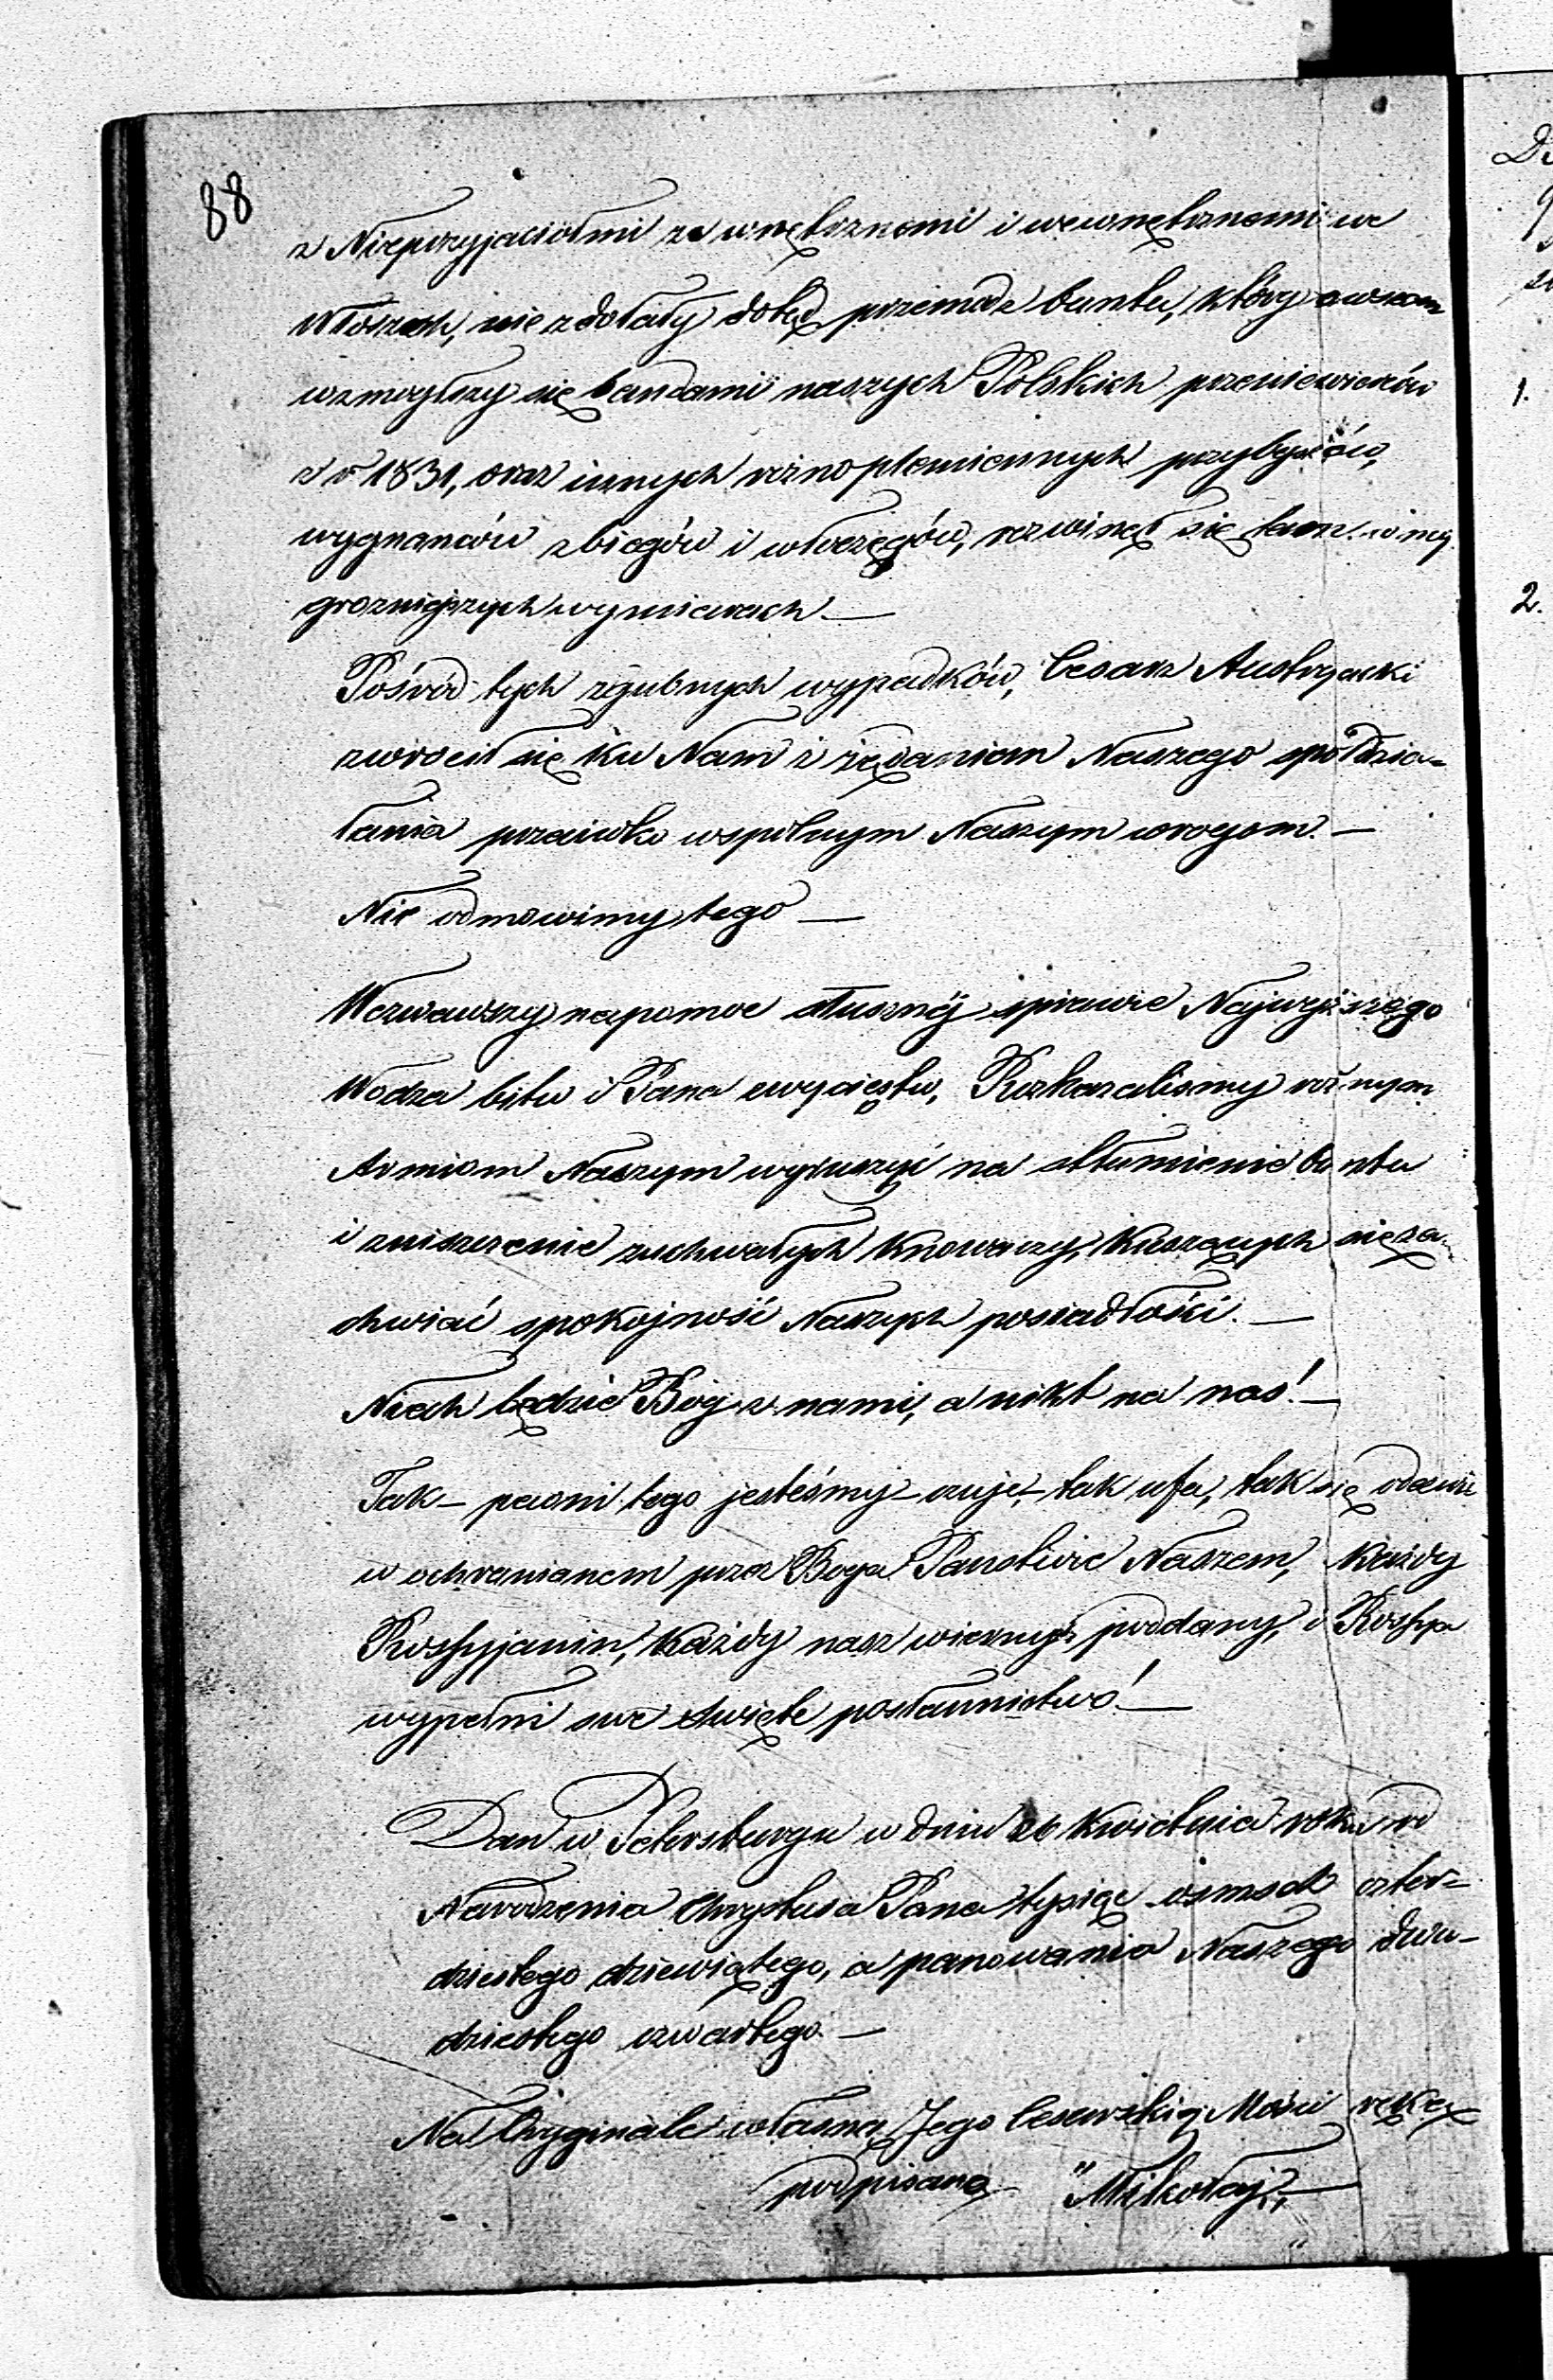 88
z Nieprzyjaciołmi zewnętrznemi i wewnętrznemi we
Włoszech, nie zdołały dotąd przemódz buntu, który
wzmogłszy się bandami naszych Polskich przeniewierców
z r 1831, oraz innych rożnoplemiennych przybyszów,
wygnanców zbiegów i włoczęgów, rozwinął się tam w naj
grozniejszych wymiarach —
Pośród tych zgubnych wypadków, Cesarz Austryacki
zwrocił się ku Nam z żądaniem Naszego społdzia-
łania przeciwko wspólnym Naszym wrogom. —
Nie odmowimy tego —
Wezwawszy na pomoc słusznéj sprawie Najwyższego
Wodza bitw i Pana zwycięstw, Rozkazalismy rożnym
Armiom Naszym wyruszyć na stłumienie buntu
i zniszczenie zuchwałych knowaczy, kuszących się za-
chwiać spokojność Naszych posiadłości. —
Niech będzie Bóg z nami, a nikt na nas! —
Tak — pewni tego jesteśmy — czuje, — tak ufa, tak się odezwie
w ochranianem przez Boga Panstwie Naszem, każdy
Rossyjanin, każdy nasz wierny poddany, i Rossya
wypełni swe święte posłannictwo! —
Dan w Petersburgu w dniu 26 Kwietnia roku od
Narodzenia Chrystusa Pana tysiąc osmset czter-
dziestego dziewiątego, a panowania Naszego dwu-
dziestego czwartego. —
Na Oryginale własną Jego Cesarskiej Mości ręką
podpisano — "Mikołaj" —
1.
2.